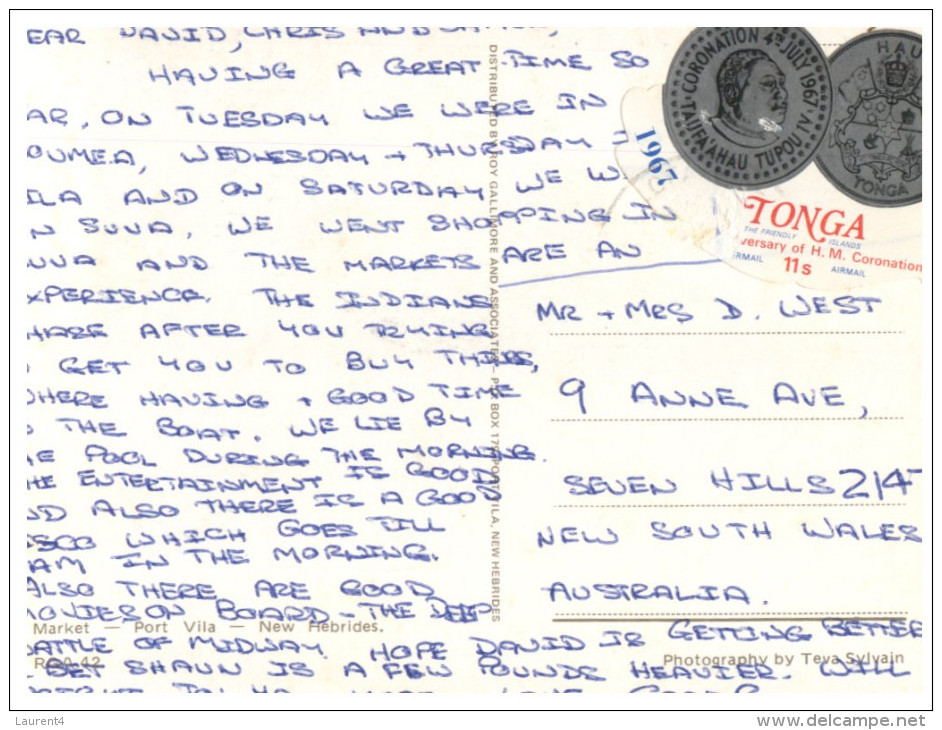 EAR DAVID, CHRIS AND
HAVING A GREAT TIME SO
AR, ON TUESDAY WE WERE IN
OUMEA, WEDNESDAY + THURSDAY
ILA AND ON SATURDAY WE W
N SUVA, WE WENT SHOPPING IN
UVA AND THE MARKETS ARE AN
XPERIENCE. THE INDIANS
HASE AFTER YOU TRYING
GET YOU TO BUY THINGS,
WHERE HAVING A GOOD TIME
THE BOAT. WE LIE BY
HE POOL DURING THE MORNING.
HE ENTERTAINMENT IS GOOD
ND ALSO THERE IS A GOOD
ISCO WHICH GOES TILL
AM IN THE MORNING.
ALSO THERE ARE GOOD
MOVIES ON BOARD - THE DEEP
ATTLE OF MIDWAY. HOPE DAVID IS GETTING BETTER
BET SHAUN IS A FEW POUNDS HEAVIER. WILL
LOVE
DISTRIBUTED BY ROY GALLIMORE AND ASSOCIATES - P.O. BOX 179 PORT VILA, NEW HEBRIDES
CORONATION 4TH JULY 1967
TAUFA'AHAU TUPOU IV
HAU
TONGA
1967
TONGA
THE FRIENDLY ISLANDS
versary of H. M. Coronation
RMAIL 11s AIRMAIL
MR + MRS D. WEST
9 ANNE AVE,
SEVEN HILLS 214
NEW SOUTH WALES
AUSTRALIA.
Market - Port Vila - New Hebrides.
Photography by Teva Sylvain
Laurent4
www.delcampe.net